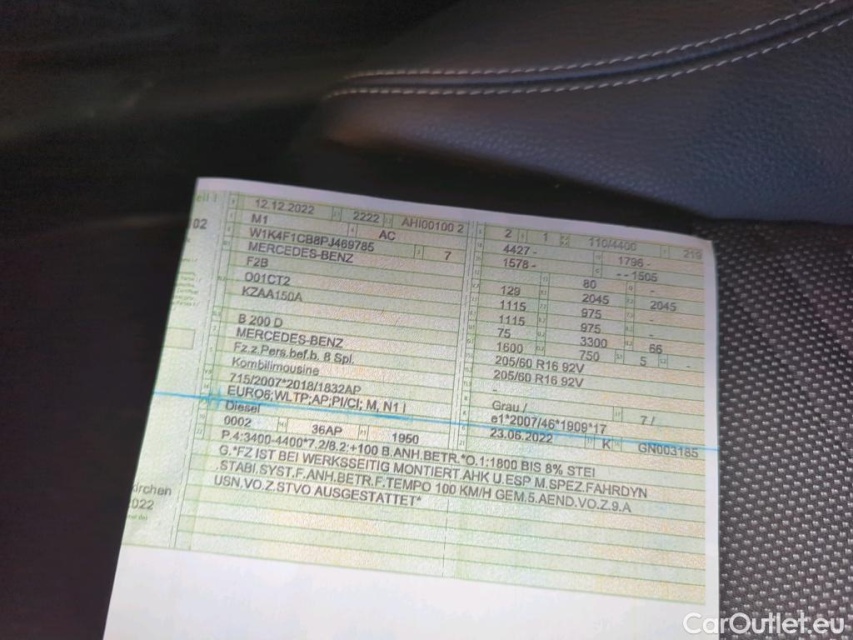 02
12.12.2022 2222 AHI00100 2
M1 AC
W1K4F1CB8PJ469785 7
MERCEDES-BENZ
F2B
O01CT2
KZAA150A
B 200 D
MERCEDES-BENZ
Fz.z.Pers.bef.b. 8 Spl.
Kombilimousine
715/2007*2018/1832AP
EURO6;WLTP;AP;PI/CI; M, N1 I
Diesel
0002 36AP 1950
2 1 110/4400 219
4427 - 1796 -
1578 - - - 1505
80 -
129 2045 2045
1115 975
1115 975 -
75 3300 66
1600 750 5 -
205/60 R16 92V
205/60 R16 92V
-
Grau / 7 /
e1*2007/46*1909*17
23.06.2022 K GN003185
P.4:3400-4400*7.2/8.2:+100 B.ANH.BETR.*O.1:1800 BIS 8% STEI
G.*FZ IST BEI WERKSSEITIG MONTIERT AHK U.ESP M.SPEZ.FAHRDYN
STABI.SYST.F.ANH.BETR.F.TEMPO 100 KM/H GEM.5.AEND.VO.Z.9.A
USN.VO.Z.STVO AUSGESTATTET*
irchen
022
CarOutlet.eu